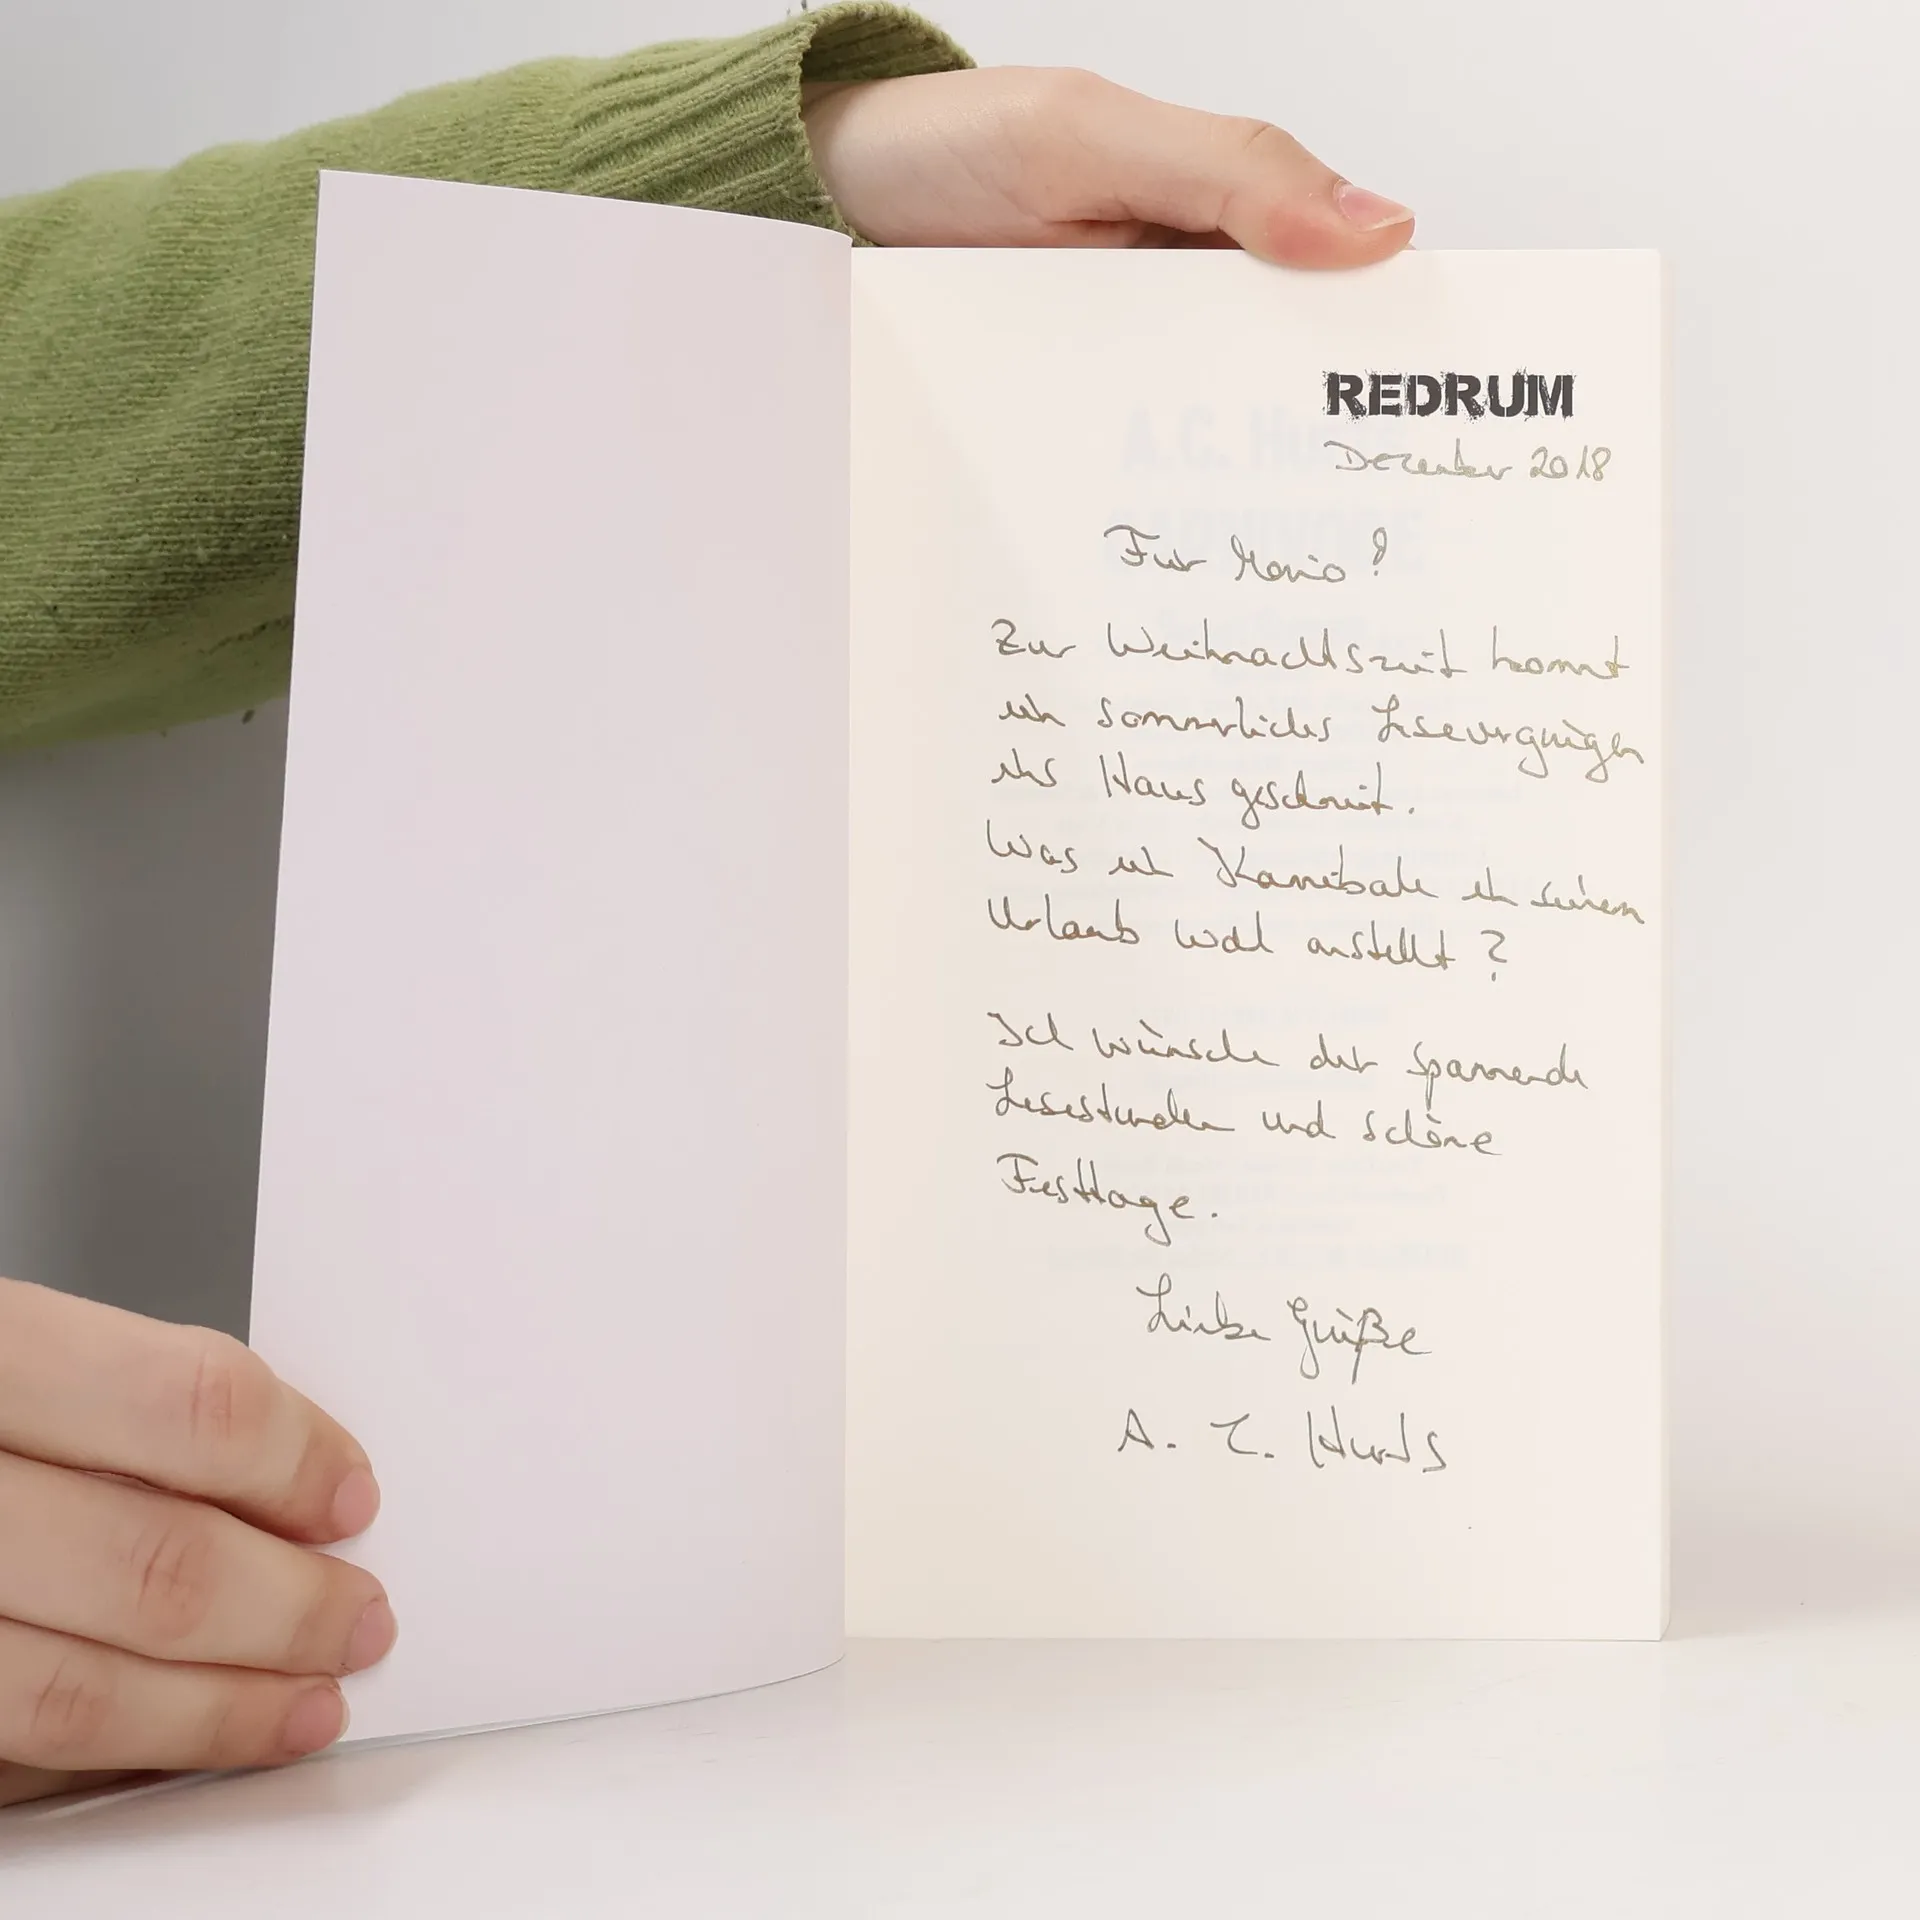 REDRUM
Dezember 2018
Für Mario!
Zur Weihnachtszeit kommt
ein sommerliches Lesevergnügen
ins Haus geschneit.
Was ein Kannibale in seinem
Urlaub wohl anstellt?
Ich wünsche dir spannende
Lesestunden und schöne
Festtage.
Liebe Grüße
A. C. Hurts